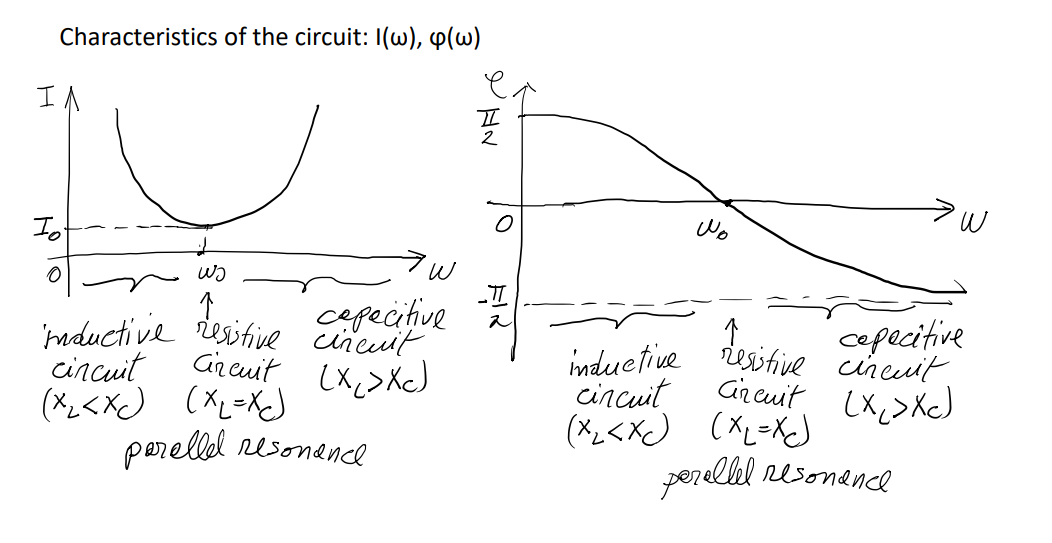 Characteristics of the circuit: I(ω), φ(ω)
I
I₀
0
ω₀
ω
inductive
circuit
(X_L<X_C)
resistive
circuit
(X_L=X_C)
capecitive
circuit
(X_L>X_C)
parellel resonance
φ
π/2
0
ω₀
ω
-π/2
inductive
circuit
(X_L<X_C)
resistive
circuit
(X_L=X_C)
capecitive
circuit
(X_L>X_C)
perellel resonance